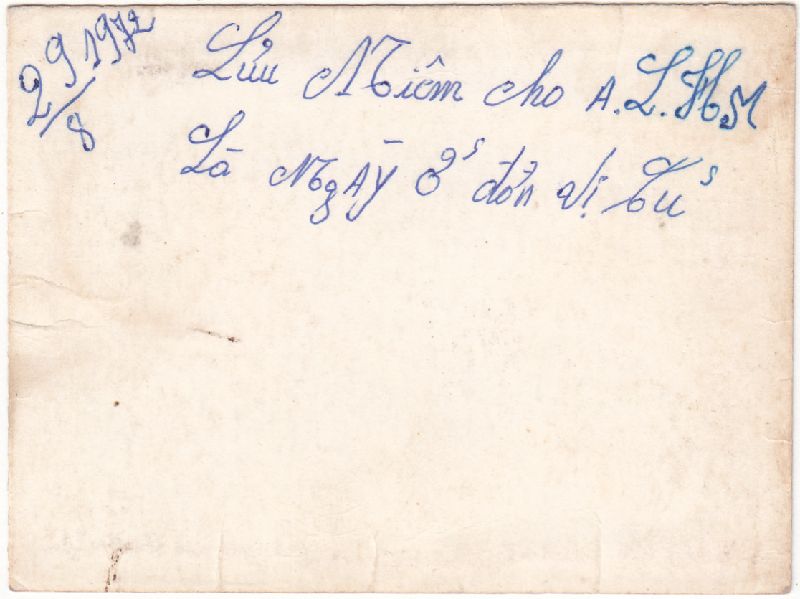 29/8 1972
Lưu Niêm cho A.L.HM
Là NgÀy ở đơn vị